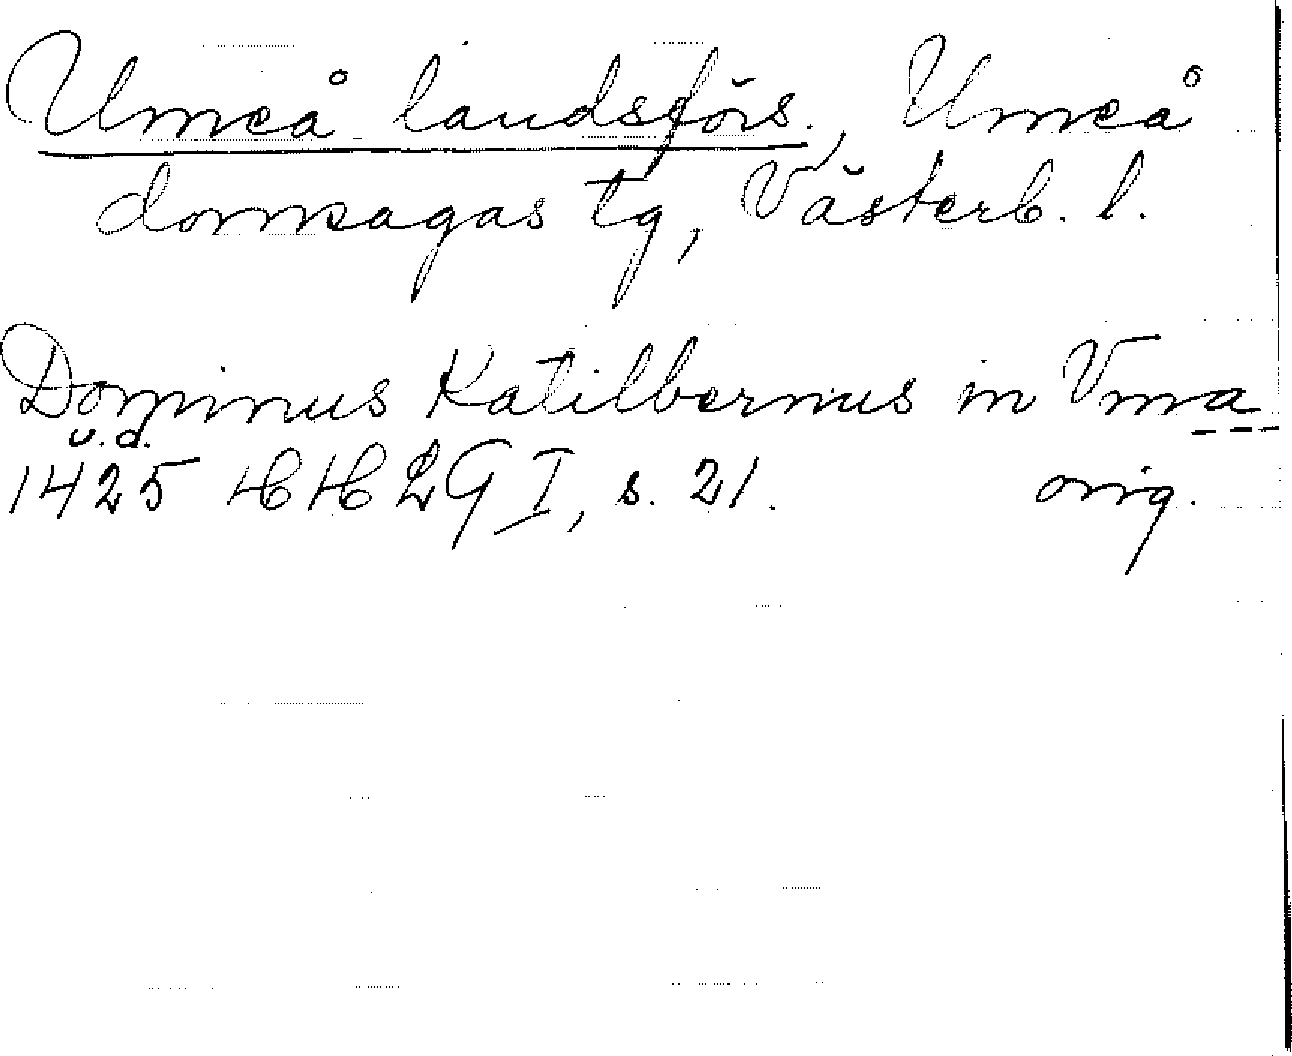 Umeå landsförs., Umeå
domsagas tg, Västerb. l.
Dominus Katilbernus in Vma
u.d.
1425 HH 29 I, s. 21. orig.